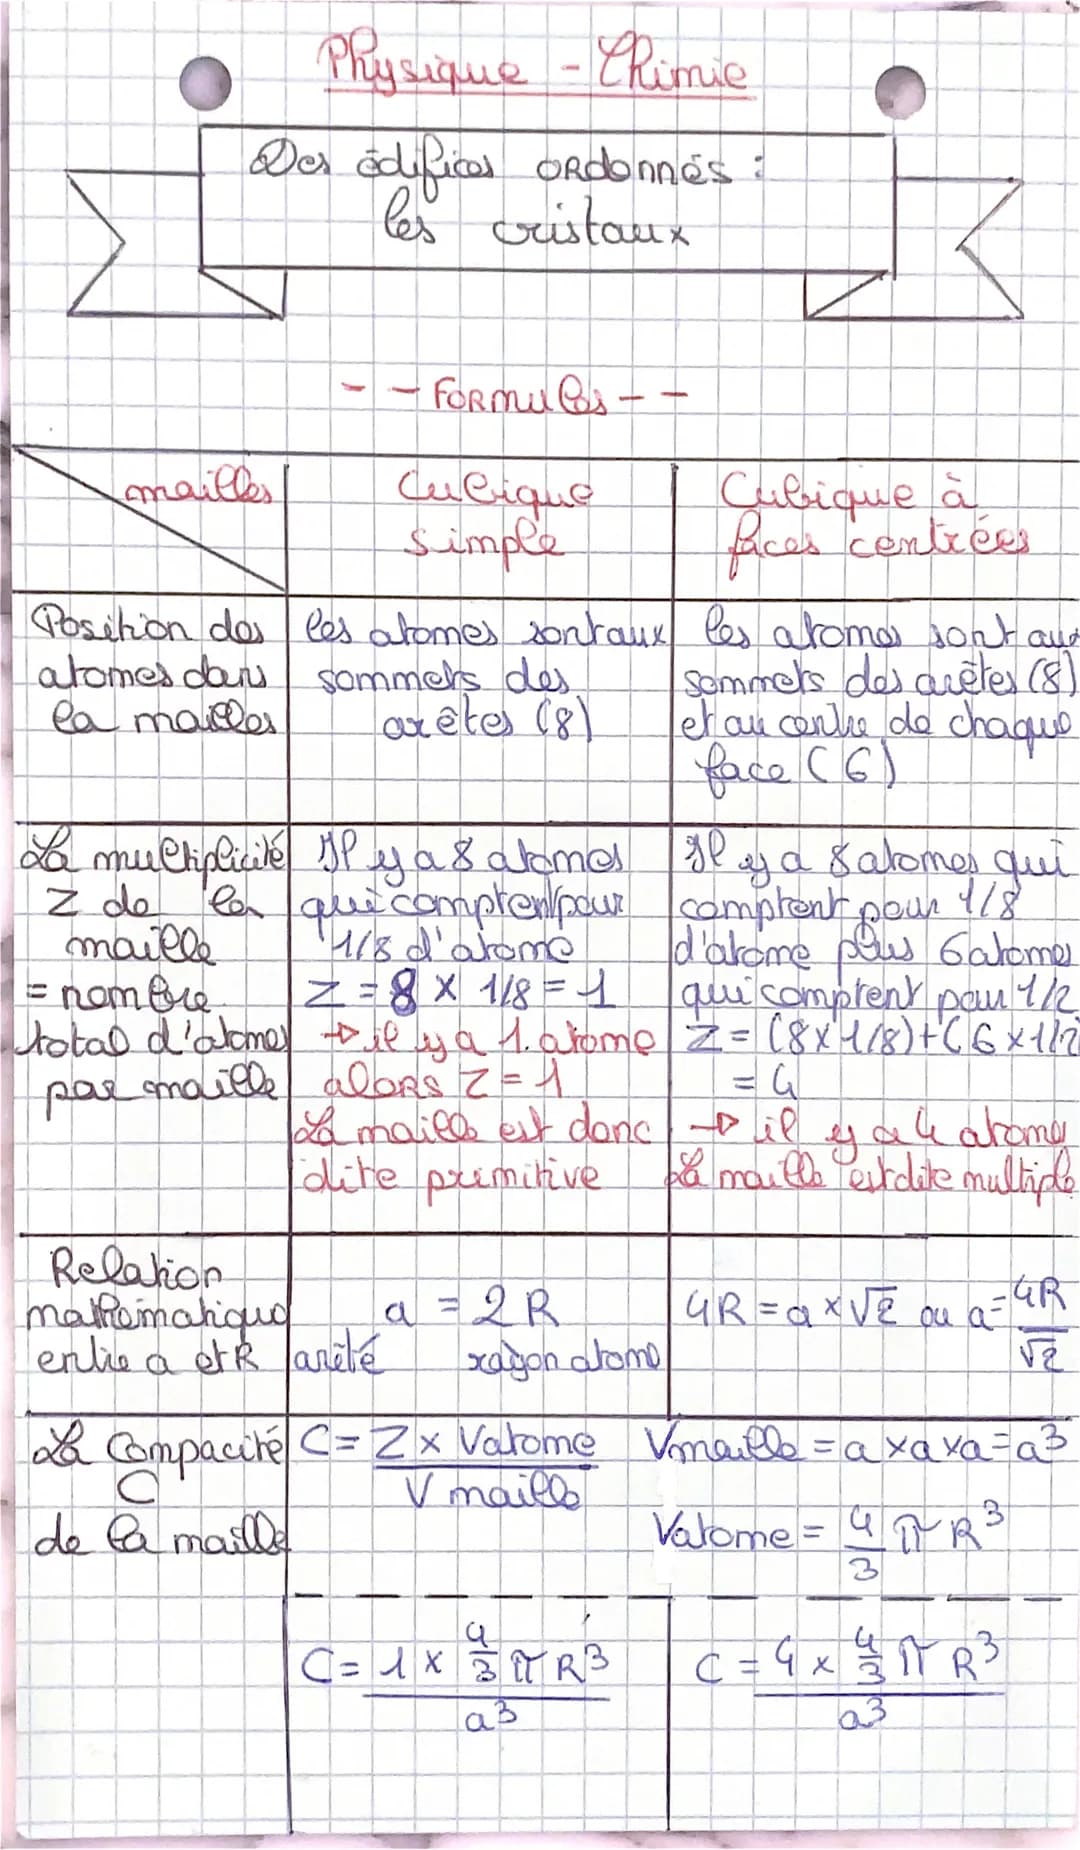 Physique - Chimie
Des édifices ordonnés :
les cristaux
- - Formules - -
mailles
Cubique
simple
Cubique à
faces centrées
Position des
atomes dans
la mailles
les atomes sont aux
sommets des
arêtes (8)
les atomes sont aux
sommets des arêtes (8)
et au centre de chaque
face (6)
La multiplicité
Z de la
maille
= nombre
total d'atomes
par maille
Il y a 8 atomes
qui comptent pour
1/8 d'atome
Z = 8 x 1/8 = 1
→ il y a 1 atome
alors Z = 1
La maille est donc
dite primitive
Il y a 8 atomes qui
comptent pour 1/8
d'atome plus 6 atomes
qui comptent pour 1/2
Z = (8 x 1/8) + (6 x 1/2)
= 4
→ il y a 4 atomes
La maille est dite multiple
Relation
mathématique
entre a et R
a = 2R
arêté rayon atome
4R = a x √2 ou a = 4R/√2
La Compacité
C
de la maille
C = Z x Vatome / V maille
Vmaille = a x a x a = a³
Vatome = 4/3 π R³
C = 1 x 4/3 π R³ / a³
C = 4 x 4/3 π R³ / a³